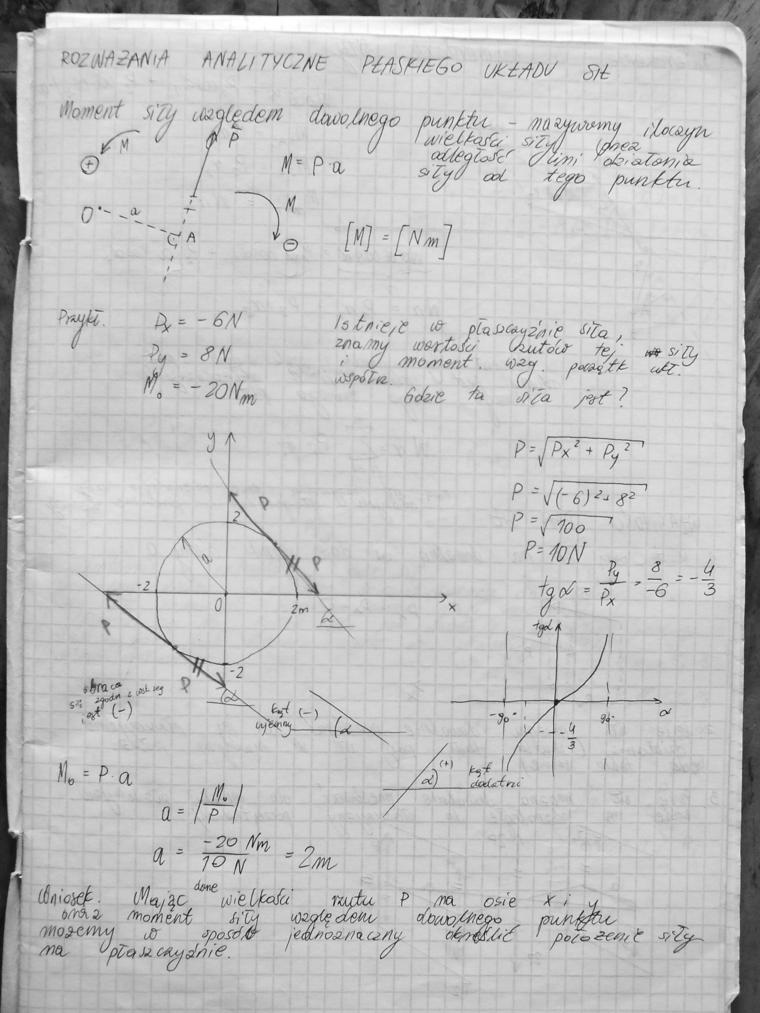 ROZWAŻANIA ANALITYCZNE PŁASKIEGO UKŁADU SIŁ
Moment siły względem dowolnego punktu - nazywamy iloczyn
wielkości siły przez
odległość lini działania
siły od tego punktu.
M
+
P
M = P·a
O
a
A
M
-
[M] = [Nm]
Przykł.
Px = -6N
Py = 8N
Mo = -20Nm
Istnieje w płaszczyźnie siła,
znamy wartości rzutów tej siły
i moment. wzg. początk ukł.
współrz.
Gdzie ta siła jest?
y
P
2
a
P
-2
0
2m
x
α
P
P
-2
α
obraca
się zgodn z wsk zeg
jest (-)
kąt (-)
ujemny
α
P = √Px² + Py²
P = √(-6)² + 8²
P = √100
P = 10N
tgα = Py/Px = 8/-6 = -4/3
tgα
-90°
90°
α
-4/3
α (+)
kąt
dodatni
Mo = P·a
a = |Mo/P|
a = -20 Nm/10 N = 2m
Wniosek. Mając dane wielkości rzutu P na osie x i y
oraz moment siły względem dowolnego punktu
możemy w sposób jednoznaczny określić położenie siły
na płaszczyźnie.